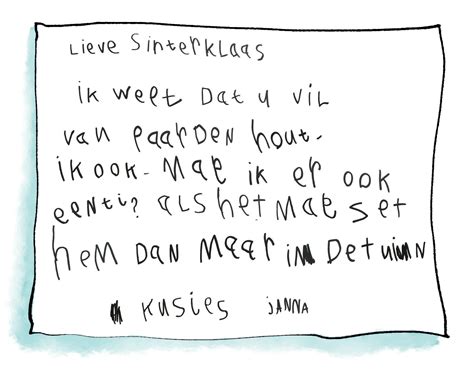 Lieve Sinterklaas
ik weet dat u vil
van paarden hout.
ik ook. Mag ik er ook
eenti? als het mag set
hem dan maar in de tuin
kusies JANNA